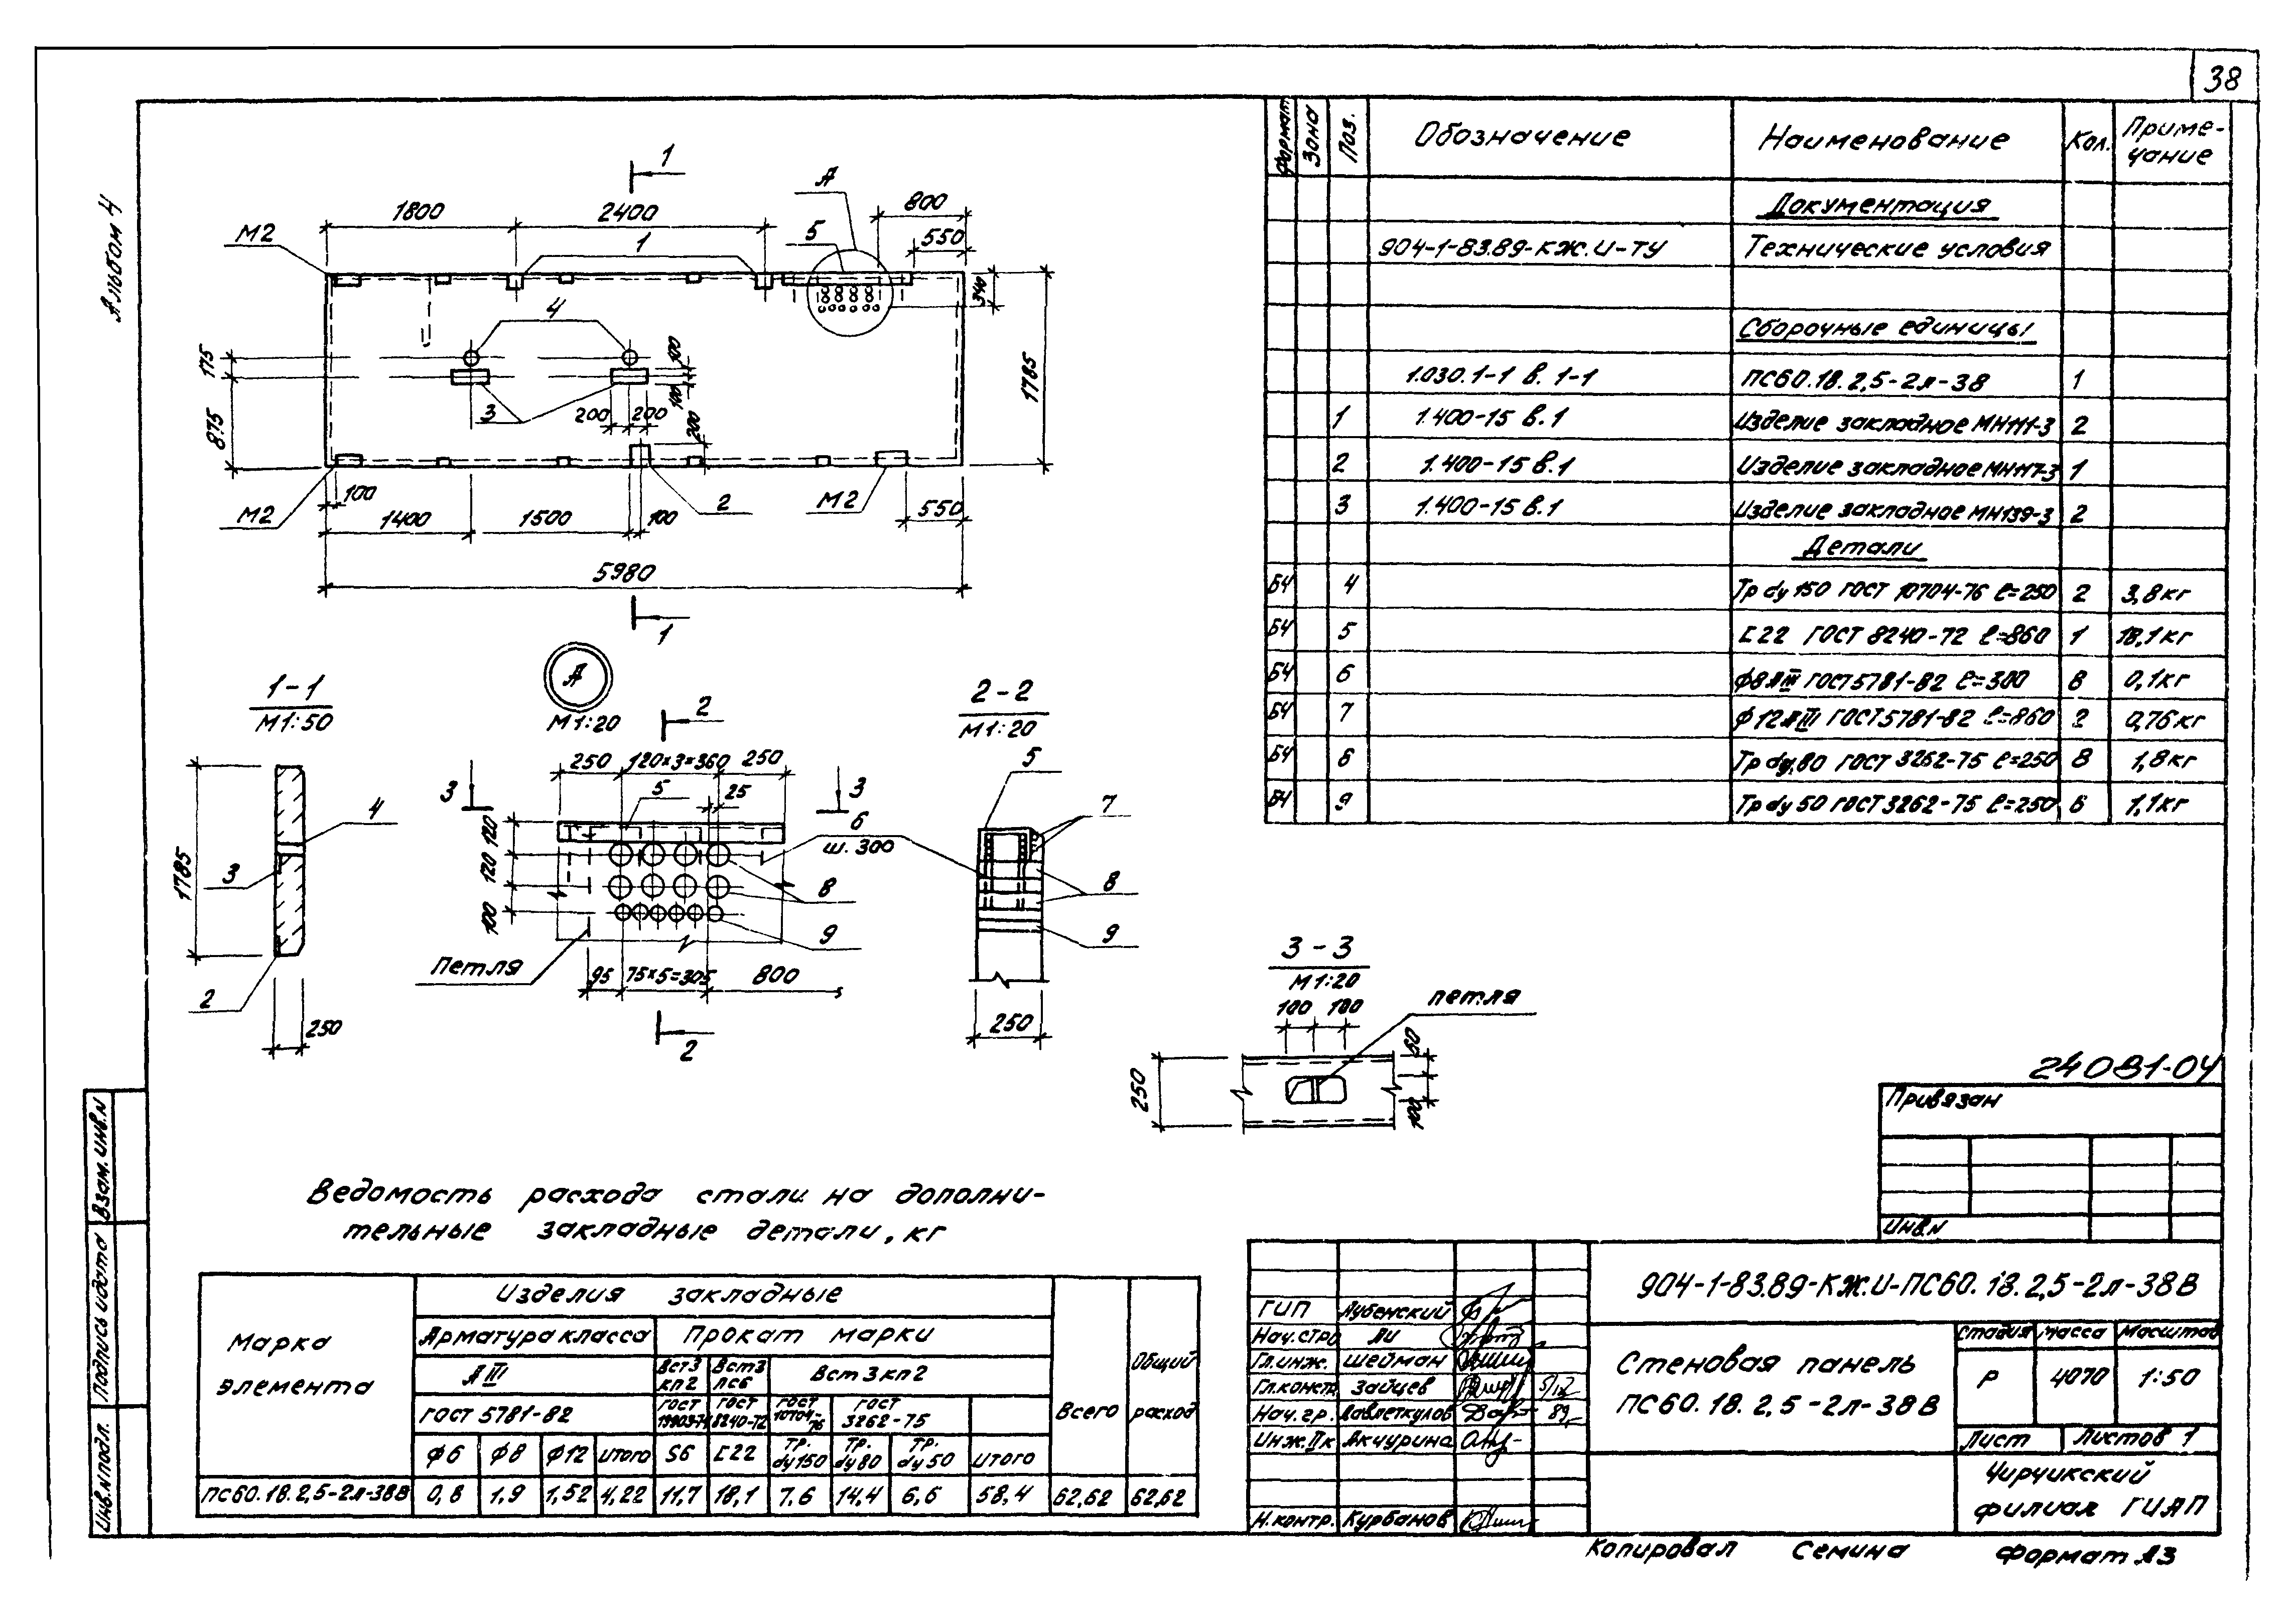 38
Альбом 4
1
А
1800
2400
800
М2
1
5
550
340
4
175
100
1785
3
200
200
100
875
200
100
М2
1400
1500
100
2
М2
550
5980
1
Формат
Зона
Поз.
Обозначение
Наименование
Кол.
Приме-
чание
Документация
904-1-83.89-КЖ.И-ТУ Технические условия
Сборочные единицы
1.030.1-1 в. 1-1 ПС60.18.2,5-2л-38 1
1 1.400-15 в.1 Изделие закладное МН111-3 2
2 1.400-15 в.1 Изделие закладное МН117-3 1
3 1.400-15 в.1 Изделие закладное МН139-3 2
Детали
БЧ 4 Тр dy 150 ГОСТ 10704-76 ℓ=250 2 3,8кг
БЧ 5 [22 ГОСТ 8240-72 ℓ=860 1 18,1кг
БЧ 6 ф8АIII ГОСТ 5781-82 ℓ=300 8 0,1кг
БЧ 7 ф12АIII ГОСТ 5781-82 ℓ=860 2 0,76кг
БЧ 6 Тр dy 80 ГОСТ 3262-75 ℓ=250 8 1,8кг
БЧ 9 Тр dy 50 ГОСТ 3262-75 ℓ=250 6 1,1кг
1-1
М1:50
1785
4
3
2
250
А
М1:20
2
250
120×3=360
250
3
5
25
3
120
120
100
6
ш. 300
8
9
Петля
95
75×5=305
800
2
2-2
М1:20
5
7
8
9
250
3-3
М1:20
100
100
петля
250
60
100
Ведомость расхода стали на дополни-
тельные закладные детали, кг
Марка
элемента
Изделия закладные
Арматура класса
Прокат марки
АIII
Вст3
кп2
Вст3
пс6
Вст3кп2
ГОСТ 5781-82
ГОСТ
19903-74
ГОСТ
8240-72
ГОСТ
10704-
76
ГОСТ
3262-75
Всего
Общий
расход
ф6 ф8 ф12 Итого S6 [22 Тр. dy150 Тр. dy80 Тр. dy50 Итого
ПС60.18.2,5-2л-38В 0,8 1,9 1,52 4,22 11,7 18,1 7,6 14,4 6,6 58,4 62,62 62,62
24081-04
Привязан
Инв.N
904-1-83.89-КЖ.И-ПС60.18.2,5-2л-38В
ГИП Лубенский
Нач.стро Ли
Гл.инж. Шейман
Гл.констр. Зайцев
Нач.гр. Давлеткулов 89
Инж.IIк Акчурина
Н.контр. Курбанов
Стеновая панель
ПС60.18.2,5-2л-38В
Стадия Масса Масштаб
Р 4070 1:50
Лист Листов 1
Чирчикский
филиал ГИАП
Копировал Семина Формат А3
Взам.инв.N
Подпись и дата
Инв.N подл.